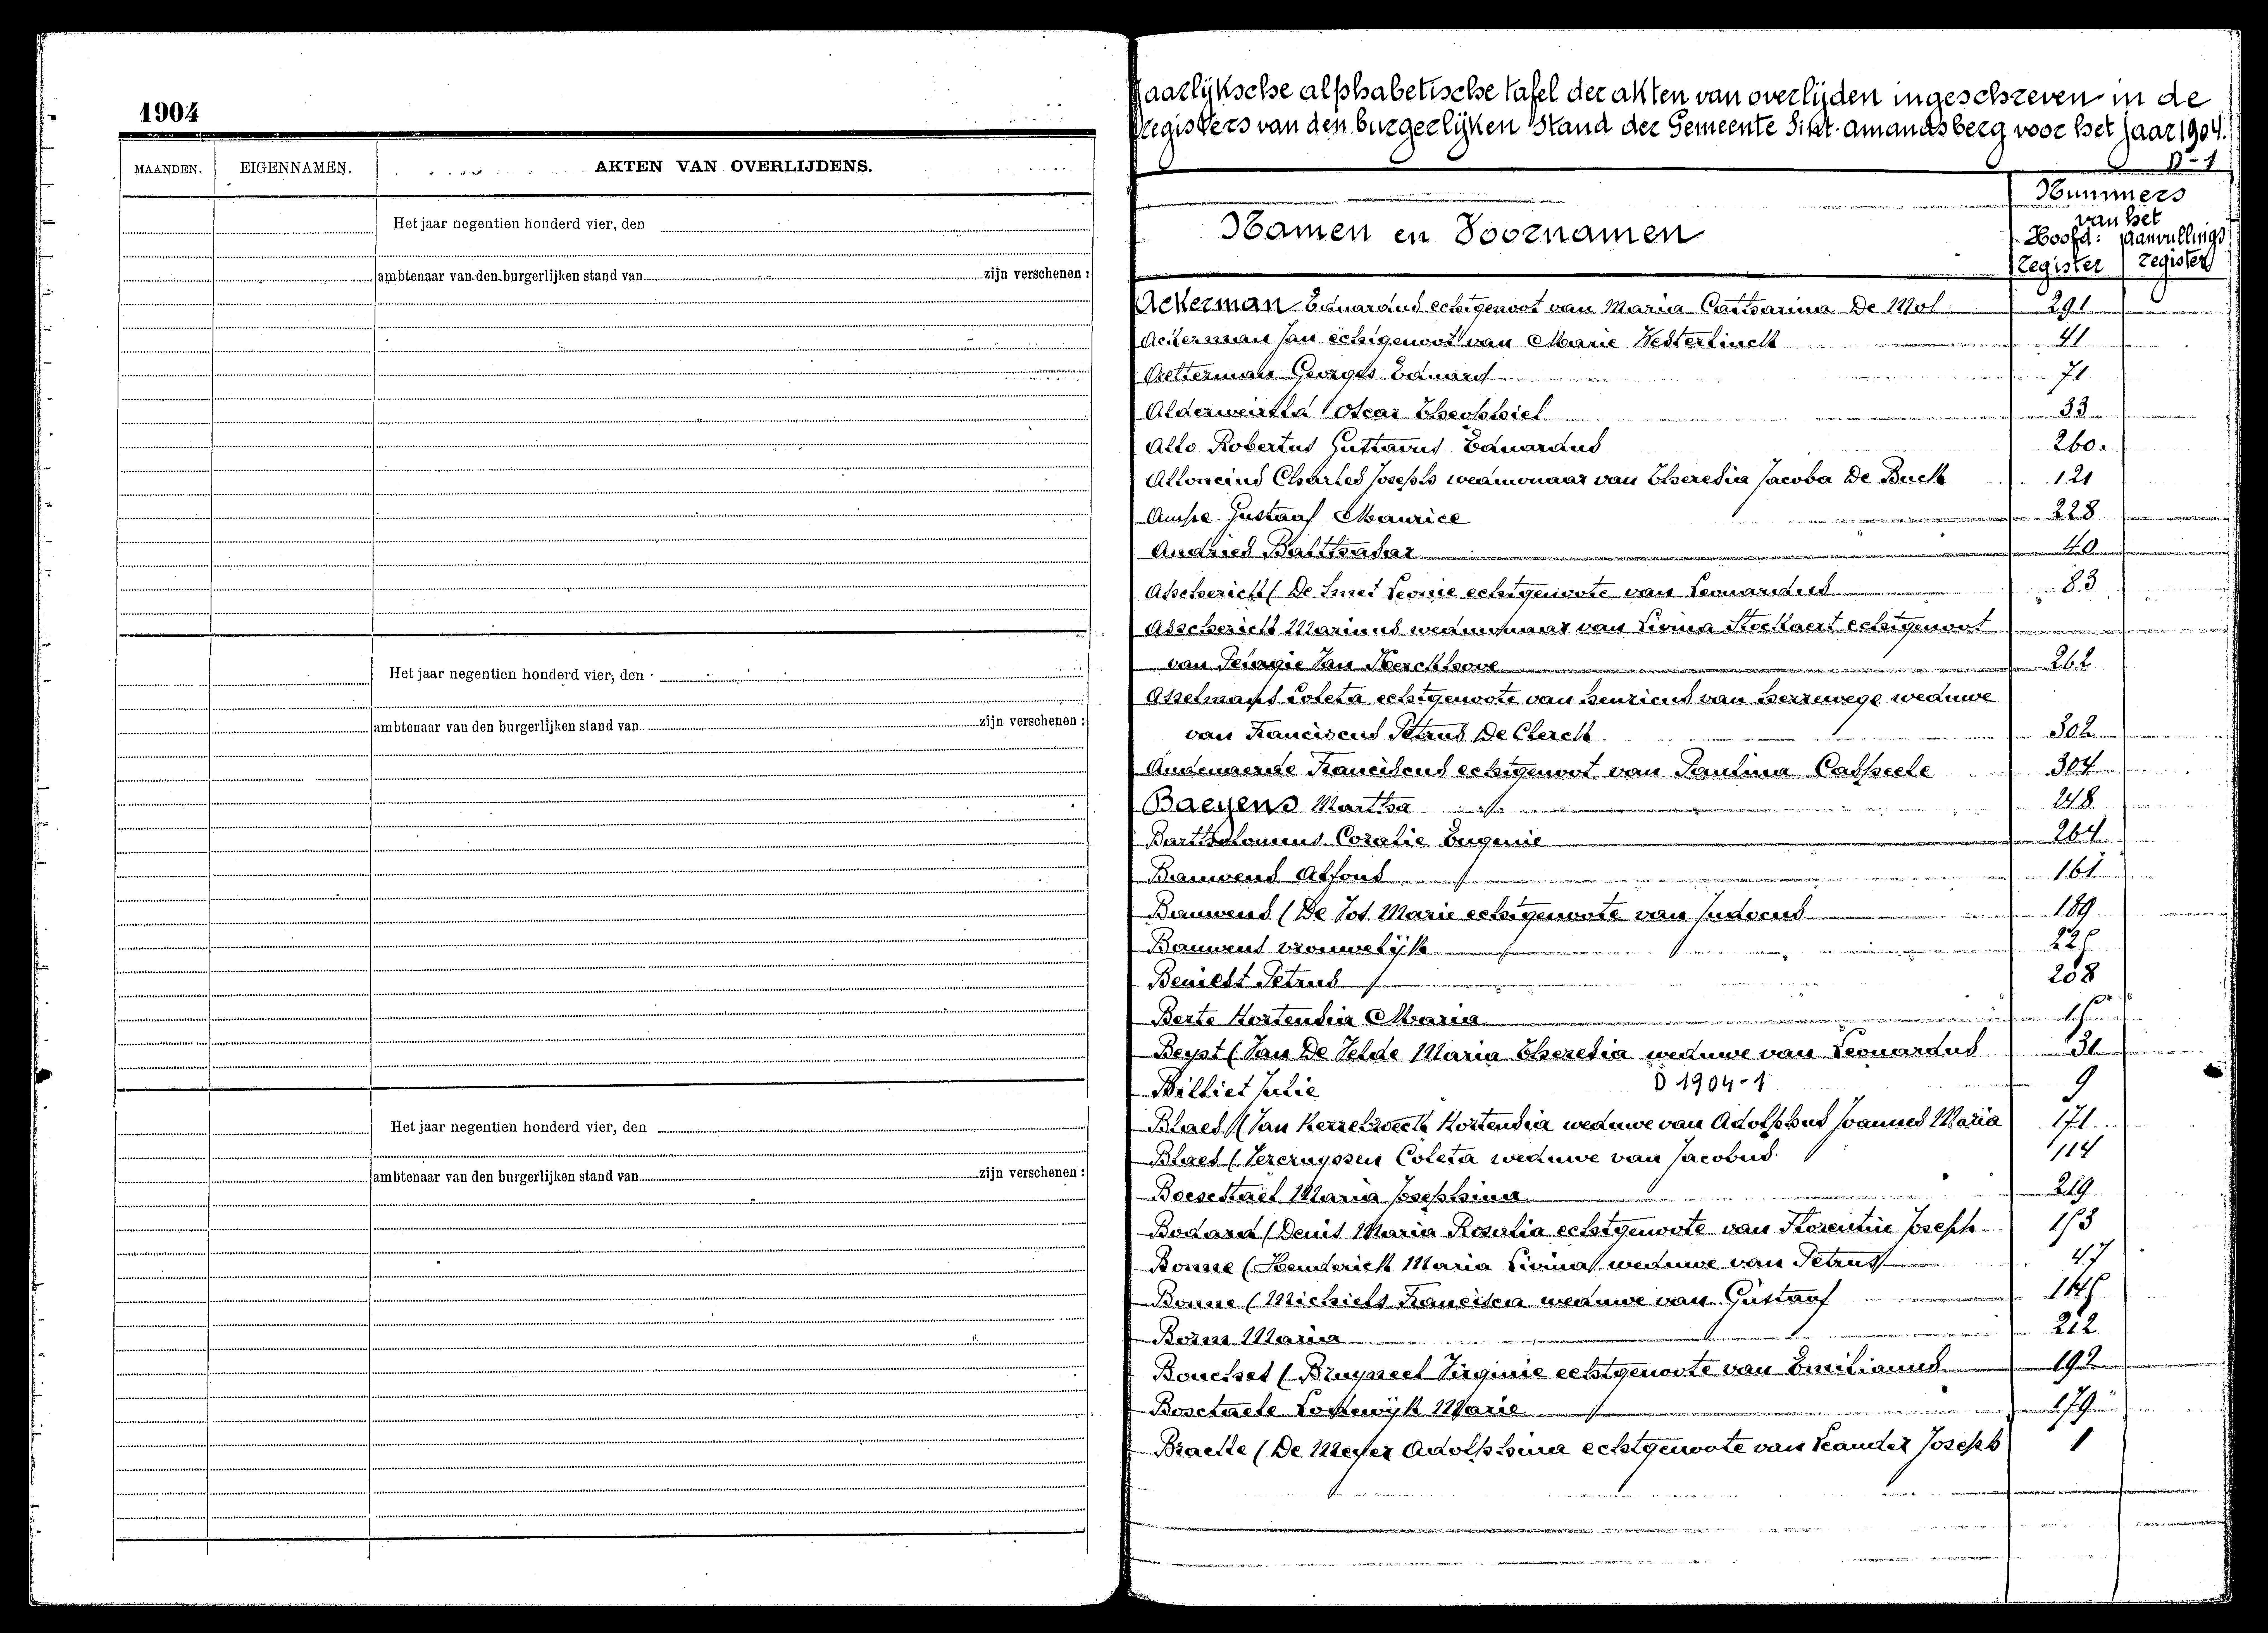 1904
MAANDEN. EIGENNAMEN. AKTEN VAN OVERLIJDENS.
Het jaar negentien honderd vier, den
ambtenaar van den burgerlijken stand van zijn verschenen :
Het jaar negentien honderd vier, den
ambtenaar van den burgerlijken stand van zijn verschenen :
Het jaar negentien honderd vier, den
ambtenaar van den burgerlijken stand van zijn verschenen :
Jaarlijksche alphabetische tafel der akten van overlijden ingeschreven in de
Registers van den burgerlijken Stand der Gemeente Sint-amandsberg voor het jaar 1904.
D-1
Namen en Voornamen
Nummers
van het
Hoofd: Aanvullings
register register
Ackerman Eduardus echtgenoot van Maria Catharina De Mol 291
Ackerman Jan echtgenoot van Marie Westerlinck 41
Georges Eduard 71
Alderweireld Oscar Theophiel 33
Allo Robertus Gustavus Eduardus 260
Charles Joseph weduwnaar van Theresia Jacoba De Buck 121
Gustaaf Maurice 228
Andries Balthasar 40
Asscherick (De Smet Leonie echtgenoote van Leonardus 83
Asscherick Marinus weduwnaar van Livina Stockaert echtgenoot
van Pelagie Van Kerckhove 262
Asselmans Coleta echtgenoote van Henricus van Herrewege weduwe
van Franciscus Petrus De Clerck 302
Audenaerde Franciscus echtgenoot van Paulina Caspeele 304
Baeyens Martha 248
Bartholomeus Coralie Eugenie 264
Bauwens Alfons 161
Bauwens (De Vos Marie echtgenoote van Judocus 189
Bauwens vrouwelijk
Petrus 208
Berte Hortensia Maria
Beyst (Van De Velde Maria Theresia weduwe van Leonardus 31
Billiet Julie D 1904-1 9
Blaes (Van Kerrebroeck Hortensia weduwe van Adolphus Joannes Maria 171
Blaes (Vercruyssen Coleta weduwe van Jacobus 114
Maria Josephina 219
Bodard (Denis Maria Rosalia echtgenoote van Florentin Joseph
Bonne (Henderick Maria Livina weduwe van Petrus 47
Bonne (Michiels Francisca weduwe van Gustaaf
Maria 212
Bouchet (Bruyneel Virginie echtgenoote van Emilianus 192
Boschaele Lodewijk Marie 179
Braelle (De Meyer Adolphina echtgenoote van Leander Joseph 1